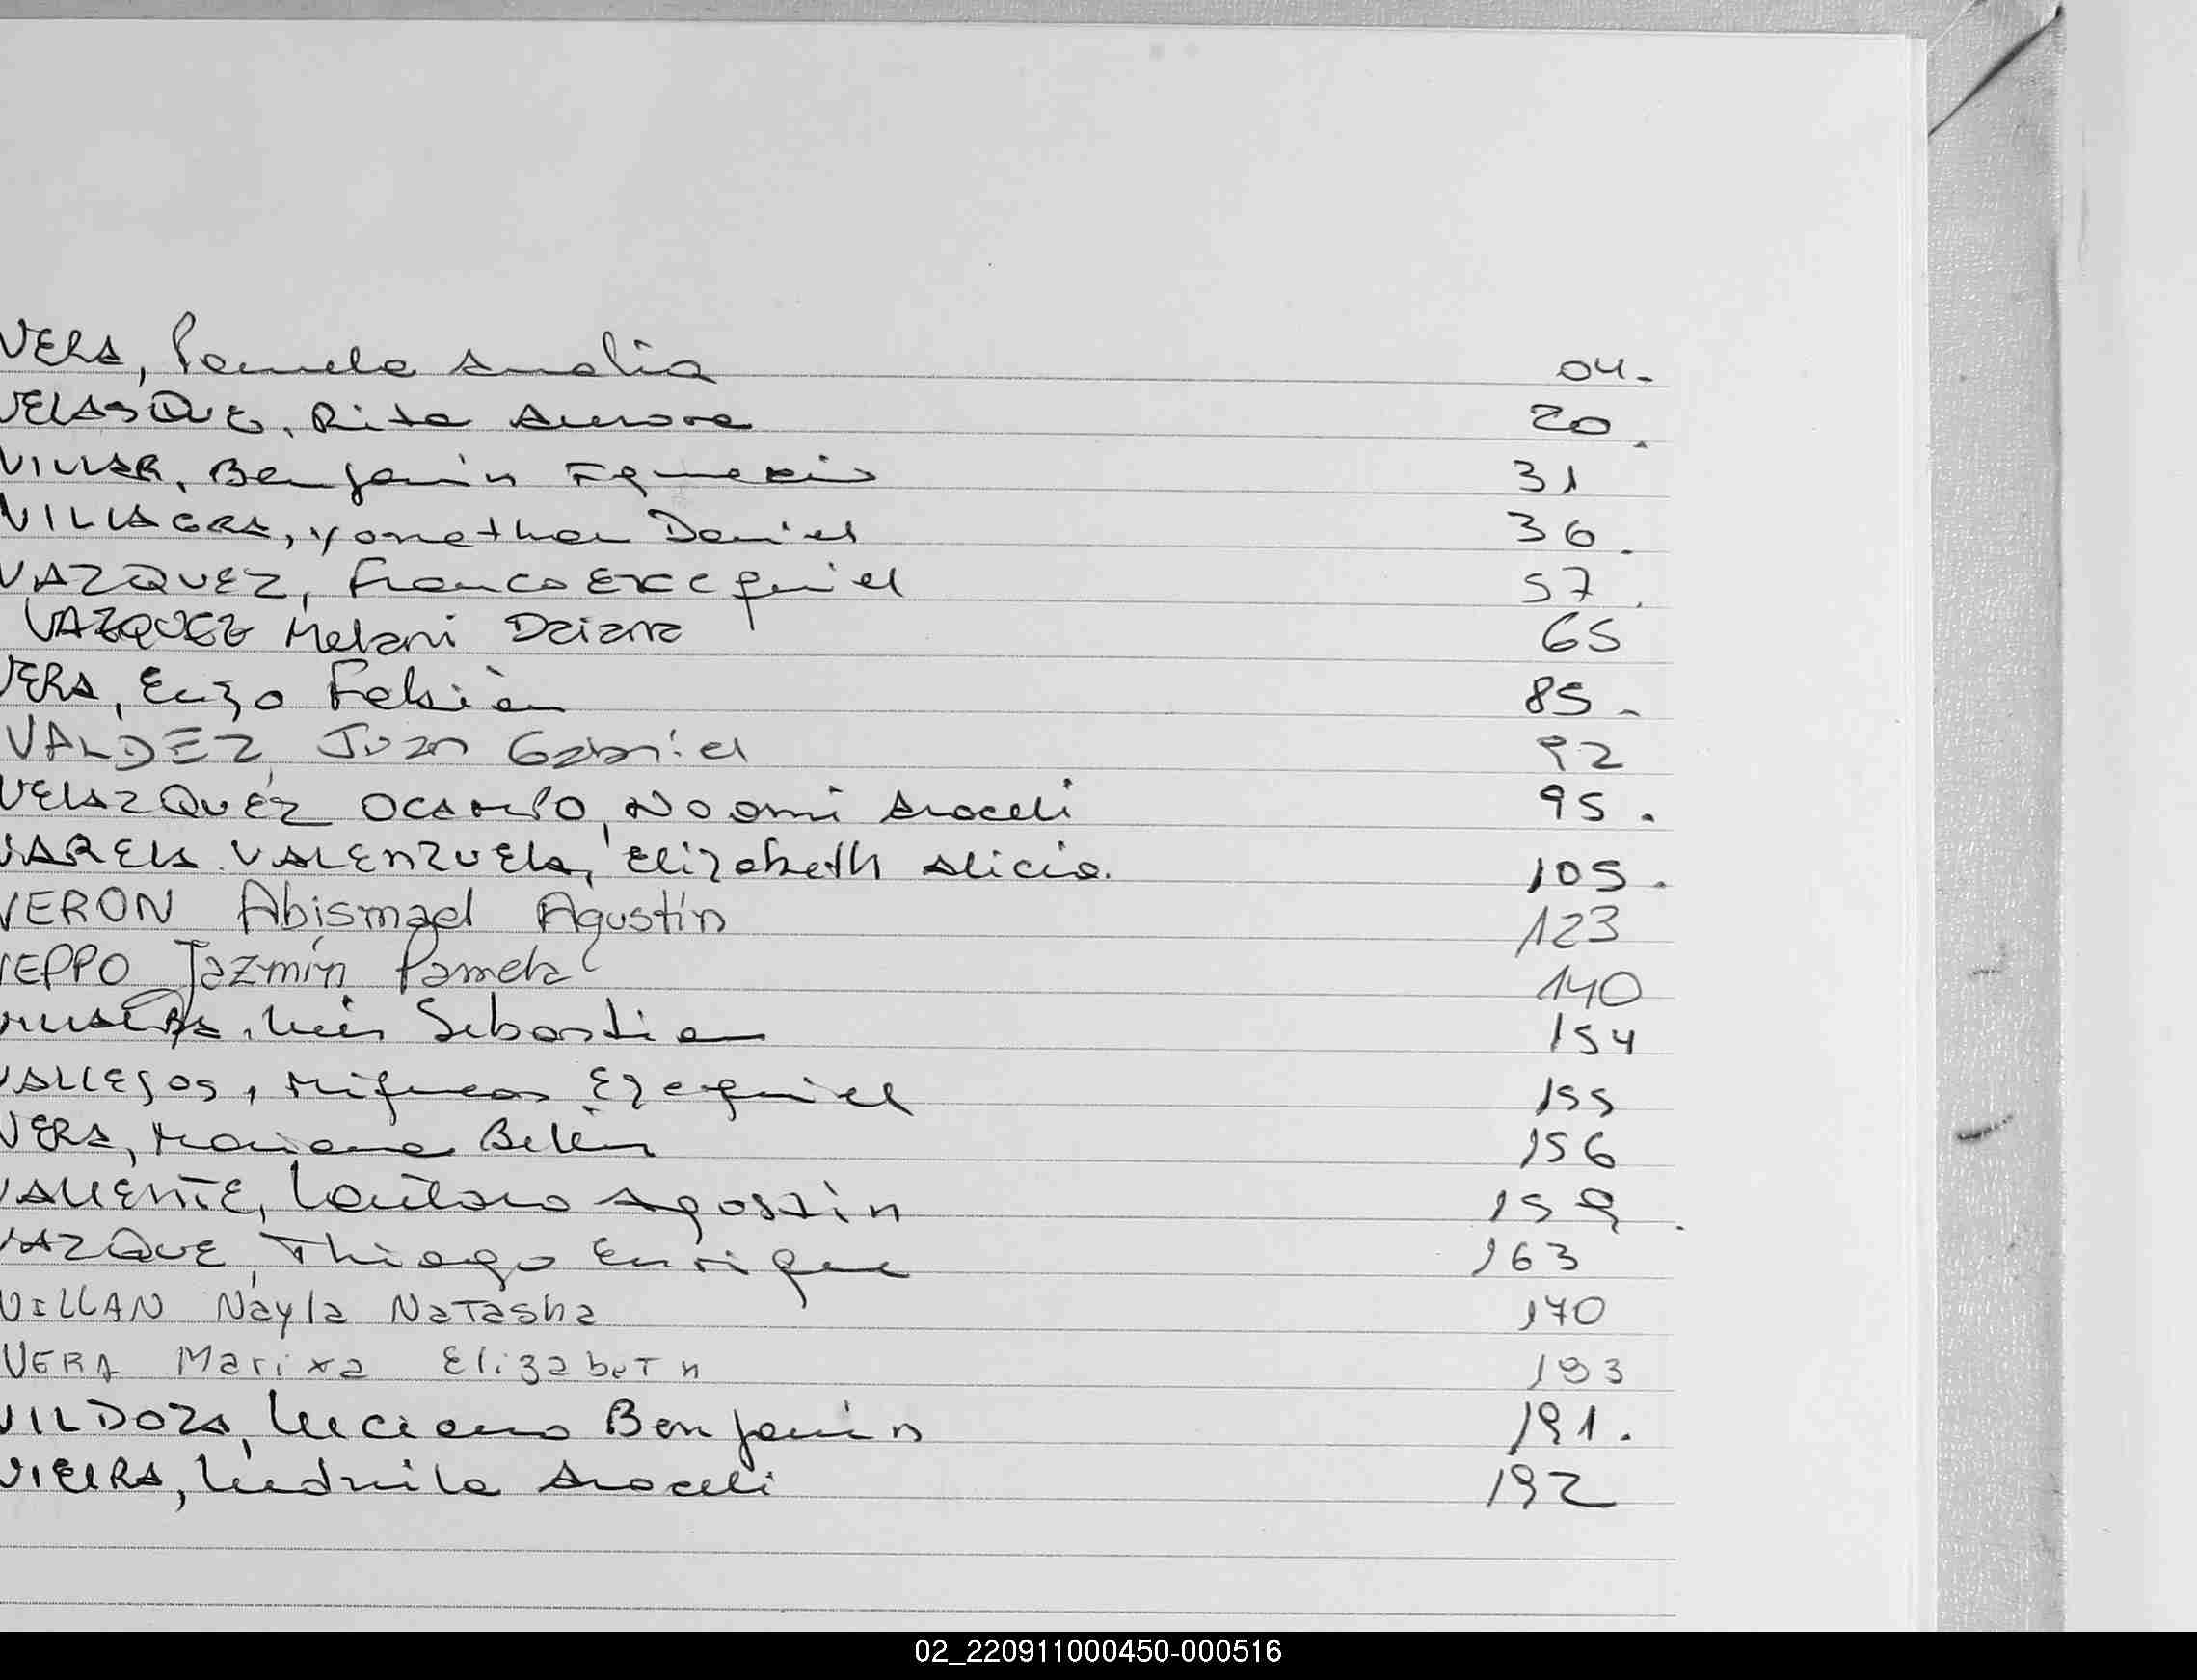 VERA, Pamela Analia 04.
VELASQUE, Rita Aurora 20.
VILLAR, Benjamin 31
VILLAGRA, Yonathan Daniel 36.
VAZQUEZ, Franco Exequiel 57.
VAZQUEZ Melani Daiana 65
VERA, Enzo Fabián 85.
VALDEZ, Juan Gabriel 92
VELAZQUEZ OCAMPO, Noomi Araceli 95.
VARELA VALENZUELA, Elizabeth Alicia. 105.
VERON Abismael Agustín 123
YEPPO Jazmín Pamela 140
Luis Sebastian 154
VALLEJOS, Ezequiel 155
VERA, Mariana Belén 156
VALIENTE, Lautaro Agostin 159.
VAZQUE, Thiago Enrique 163
VILLAN Nayla Natasha 170
VERA Marixa Elizabeth 193
VILDOZA, Luciano Benjamin 191.
VIEIRA, Ludmila Araceli 192
02_220911000450-000516